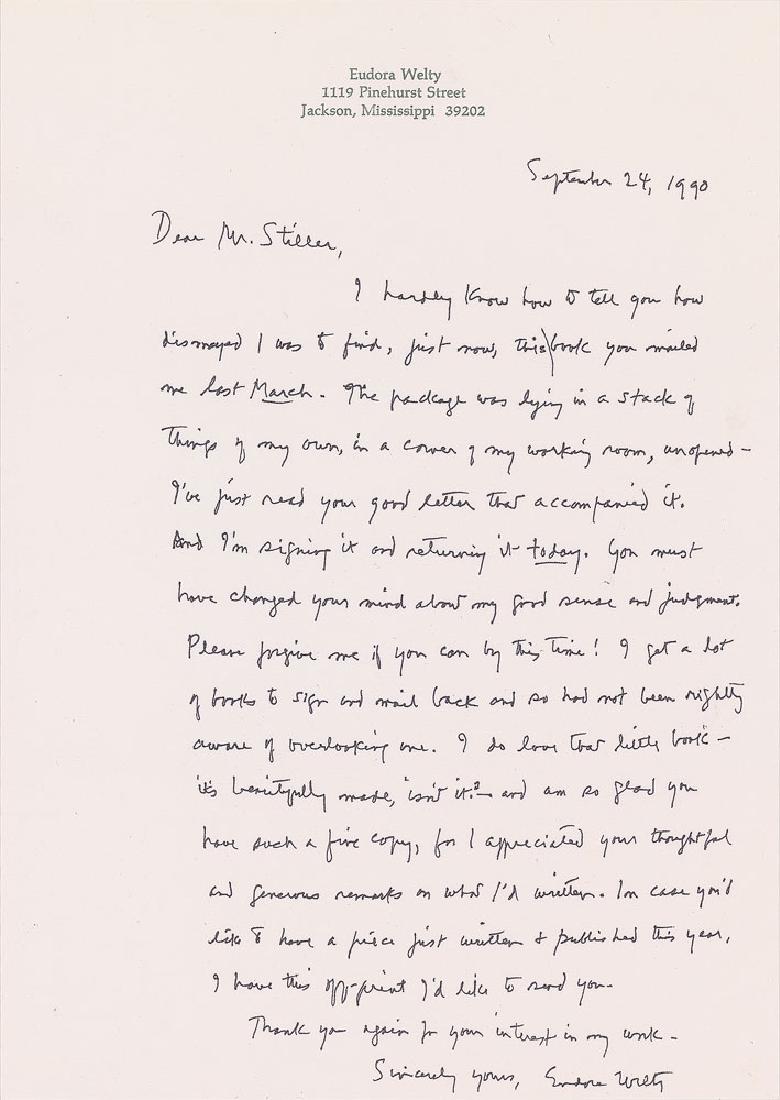 Eudora Welty
1119 Pinehurst Street
Jackson, Mississippi 39202
September 24, 1990
Dear Mr. Stiller,
I hardly know how to tell you how
dismayed I was to find, just now, this book you mailed
me last March. The package was lying in a stack of
things of my own, in a corner of my working room, unopened –
I've just read your good letter that accompanied it.
And I'm signing it and returning it today. You must
have changed your mind about my good sense and judgment.
Please forgive me if you can by this time! I get a lot
of books to sign and mail back and so had not been rightly
aware of overlooking one. I do love that little book –
it's beautifully made, isn't it? – and am so glad you
have such a fine copy, for I appreciated your thoughtful
and generous remarks on what I'd written. In case you'd
like to have a piece just written & published this year,
I have this off-print I'd like to send you.
Thank you again for your interest in my work –
Sincerely yours, Eudora Welty